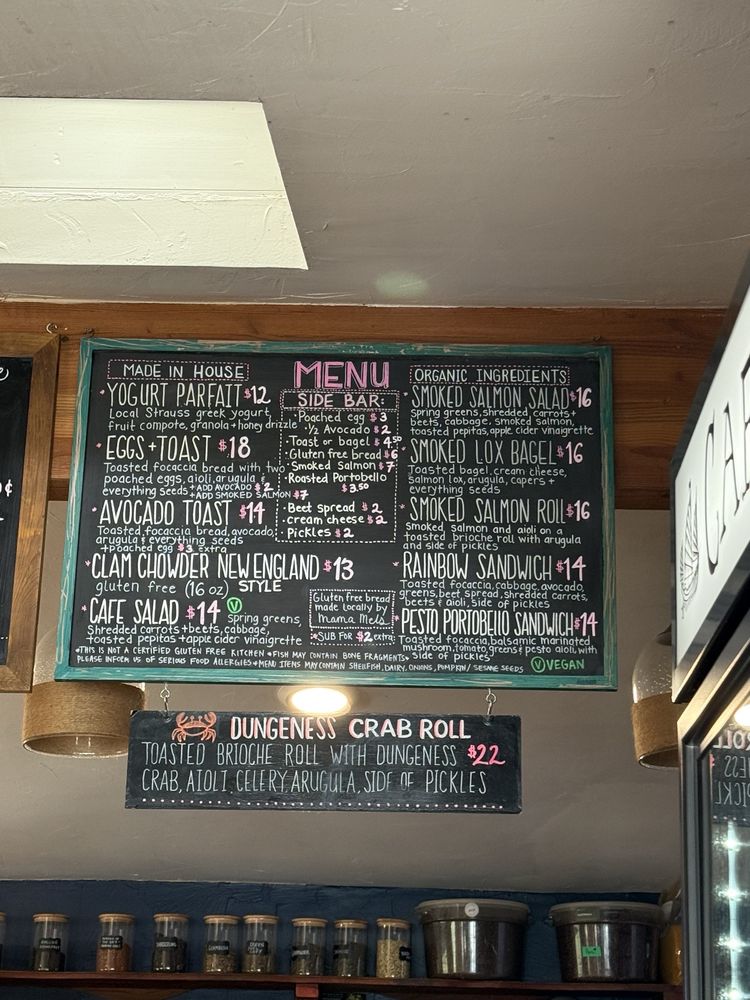 MADE IN HOUSE
YOGURT PARFAIT $12
Local Strauss greek yogurt,
fruit compote, granola + honey drizzle
EGGS + TOAST $18
Toasted focaccia bread with two
poached eggs, aioli, arugula &
everything seeds + ADD AVOCADO $2
+ ADD SMOKED SALMON $7
AVOCADO TOAST $14
Toasted focaccia bread, avocado,
arugula & everything seeds
+poached egg $3 extra
CLAM CHOWDER NEW ENGLAND $13
gluten free (16 oz) STYLE
CAFE SALAD $14 V Spring greens,
Shredded carrots + beets, cabbage,
toasted pepitas + apple cider vinaigrette
MENU
SIDE BAR:
Poached egg $3
½ Avocado $2
Toast or bagel $4.50
Gluten free bread $6
Smoked Salmon $7
Roasted Portobello
$3.50
Beet spread $2
cream cheese $2
Pickles $2
Gluten free bread
made locally by
Mama Mel's
SUB FOR $2 extra
ORGANIC INGREDIENTS
SMOKED SALMON SALAD $16
Spring greens, shredded carrots +
beets, cabbage, smoked salmon,
toasted pepitas, apple cider vinaigrette
SMOKED LOX BAGEL $16
Toasted bagel, cream cheese,
Salmon lox, arugula, capers +
everything seeds
SMOKED SALMON ROLL $16
Smoked, salmon and aioli on a
toasted brioche roll with arugula
and side of pickles
RAINBOW SANDWICH $14
Toasted focaccia, cabbage, avocado,
greens, beet spread, shredded carrots,
beets & aioli, side of pickles
PESTO PORTOBELLO SANDWICH $14
Toasted focaccia, balsamic marinated
mushroom, tomato, greens & pesto aioli, with
side of pickles
V VEGAN
*THIS IS NOT A CERTIFIED GLUTEN FREE KITCHEN * FISH MAY CONTAIN BONE FRAGMENTS *
PLEASE INFORM US OF SERIOUS FOOD ALLERGIES * MENU ITEMS MAY CONTAIN SHELLFISH, DAIRY, ONIONS, PUMPKIN / SESAME SEEDS
DUNGENESS CRAB ROLL
TOASTED BRIOCHE ROLL WITH DUNGENESS $22
CRAB, AIOLI, CELERY ARUGULA, SIDE OF PICKLES